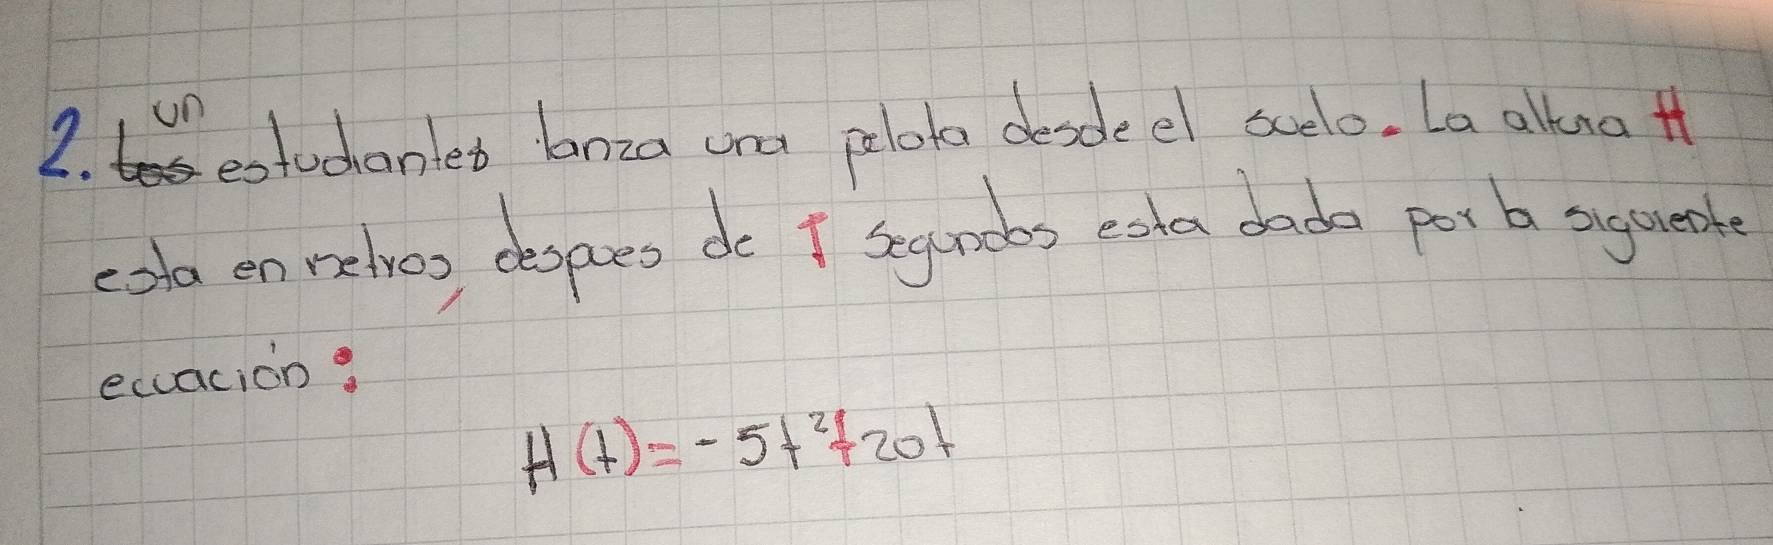 un
2. los estudiantes lanza una pelota desde el suelo. La altura H
esta en metros, despues de t segundos esta dada por la siguiente
ecuación:
H(t) = -5t²+20t